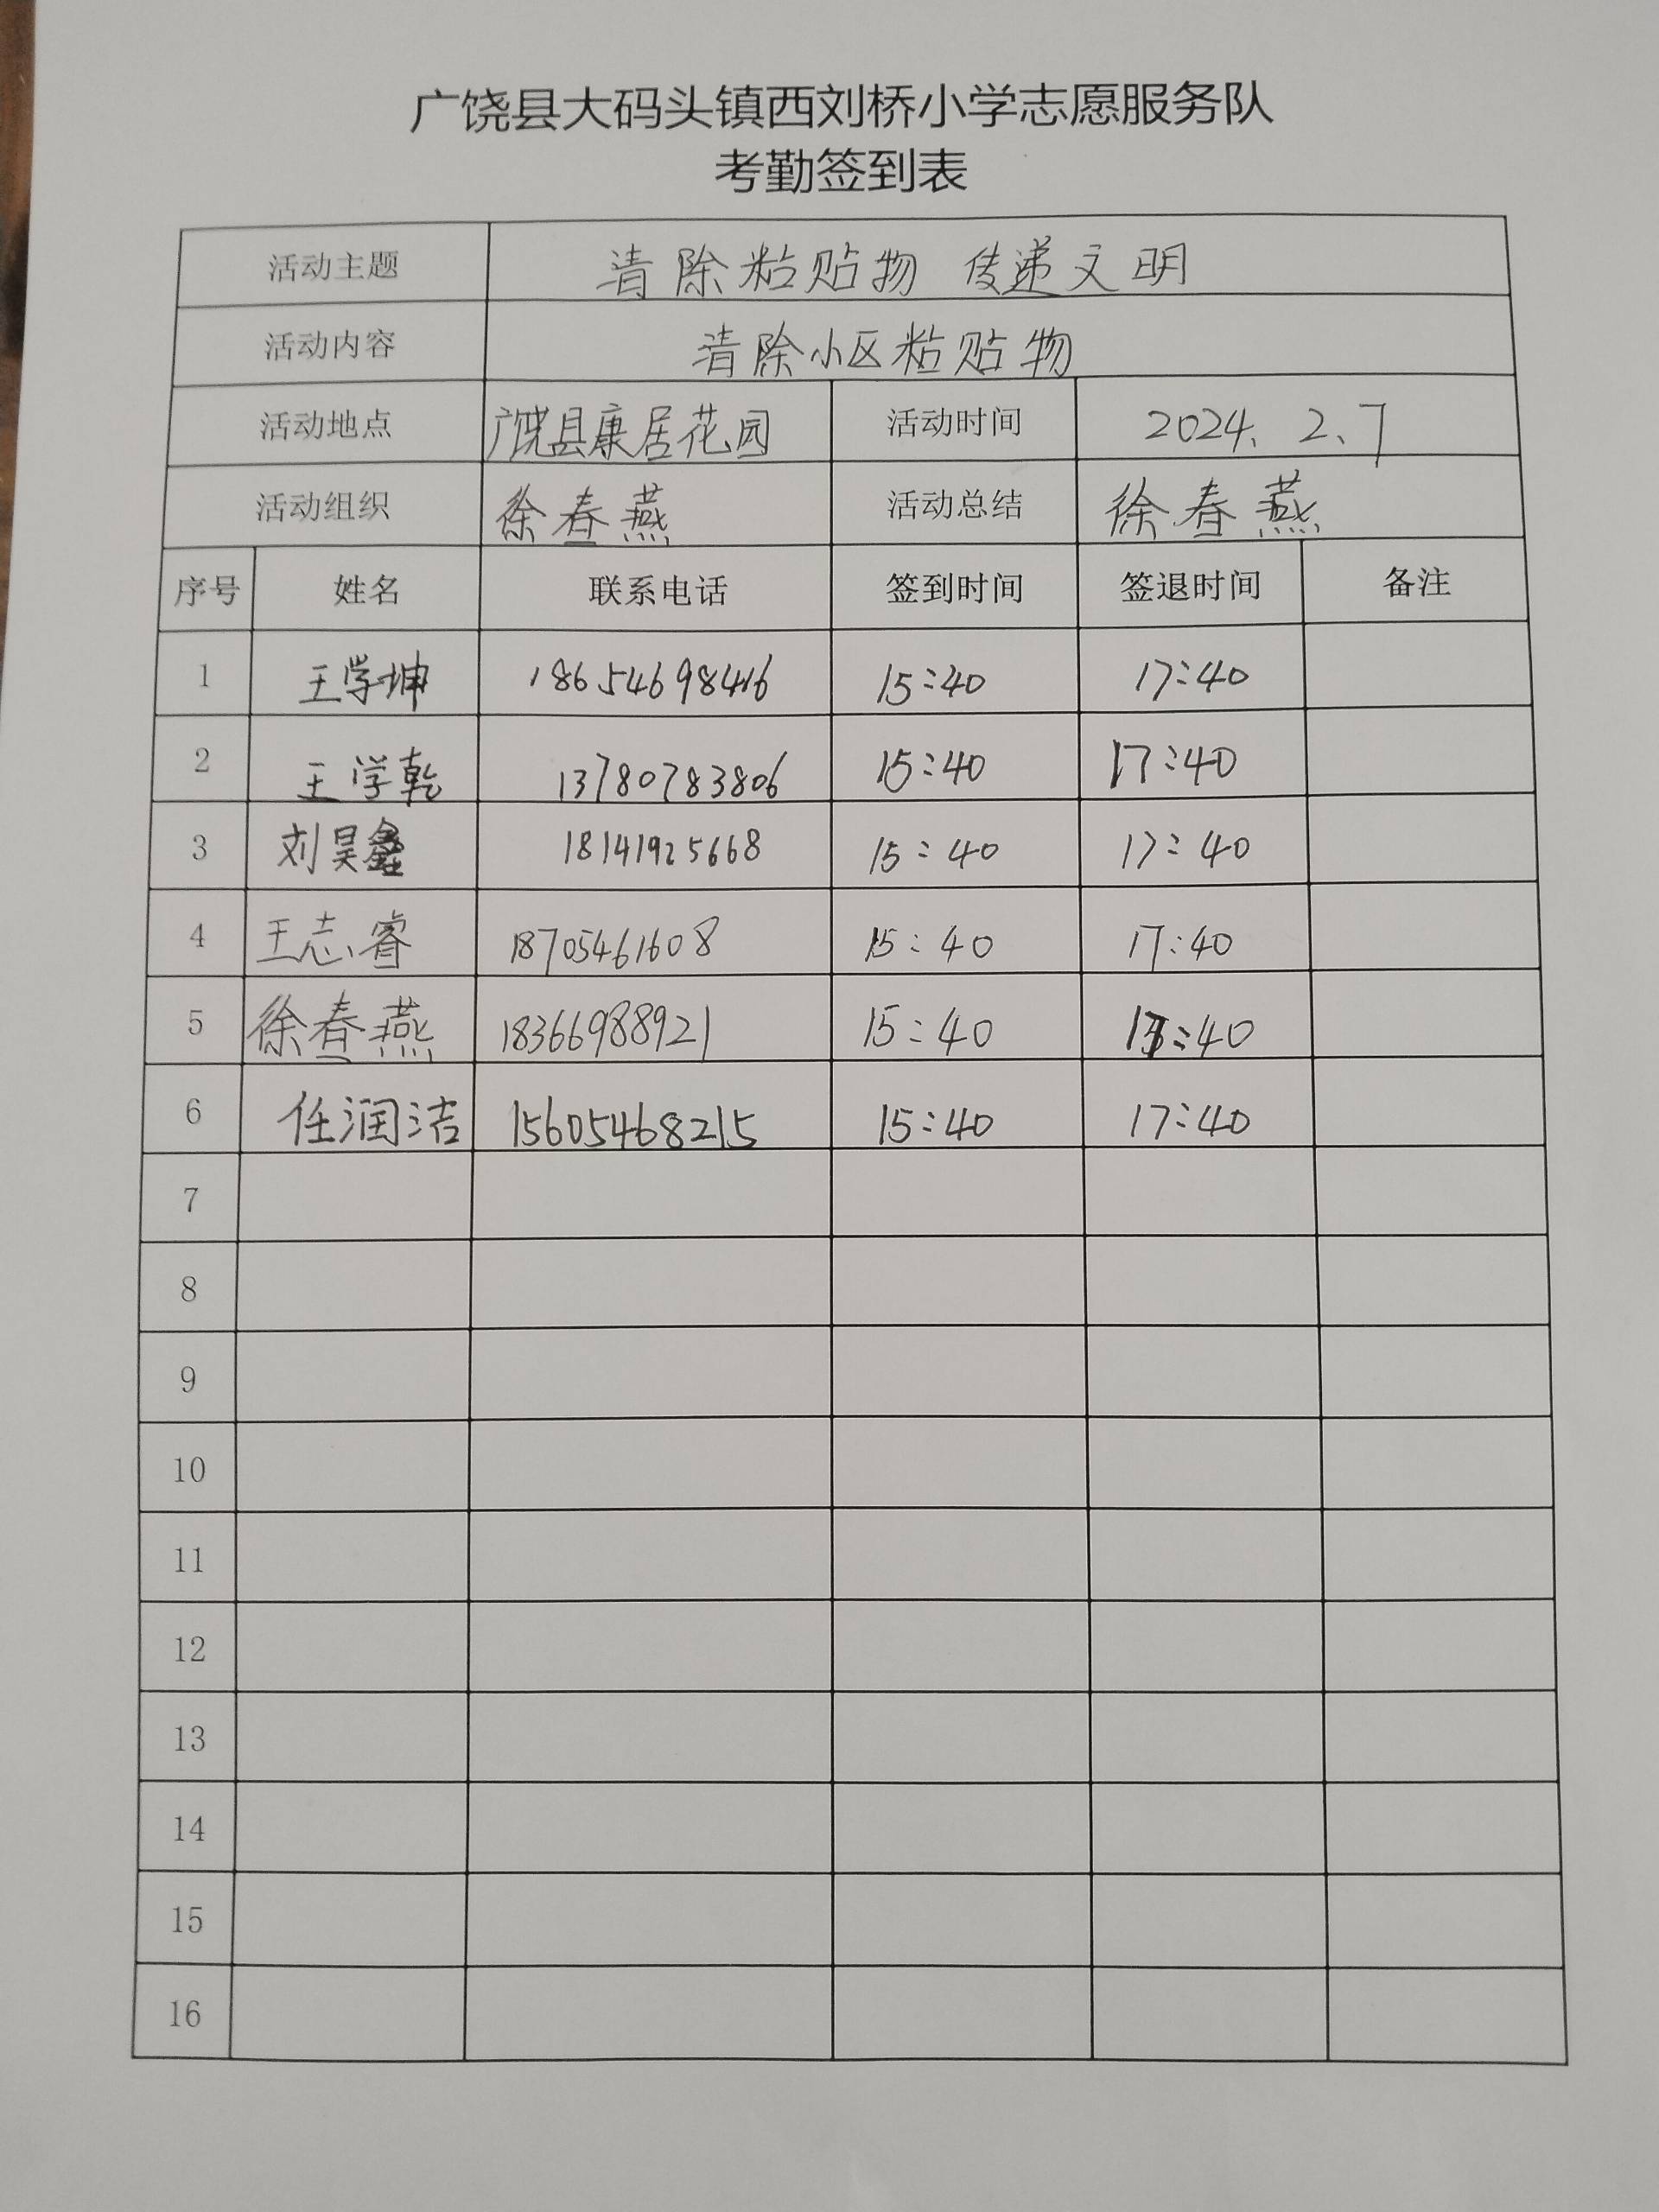 广饶县大码头镇西刘桥小学志愿服务队
考勤签到表
活动主题 清除粘贴物 传递文明
活动内容 清除小区粘贴物
活动地点 广饶县康居花园 活动时间 2024.2.7
活动组织 徐春燕 活动总结 徐春燕
序号 姓名 联系电话 签到时间 签退时间 备注
1 王学坤 18654698416 15:40 17:40
2 王学乾 13780783806 15:40 17:40
3 刘昊鑫 18141925668 15:40 17:40
4 王志睿 18705461608 15:40 17:40
5 徐春燕 18366988921 15:40 17:40
6 任润洁 15605468215 15:40 17:40
7
8
9
10
11
12
13
14
15
16